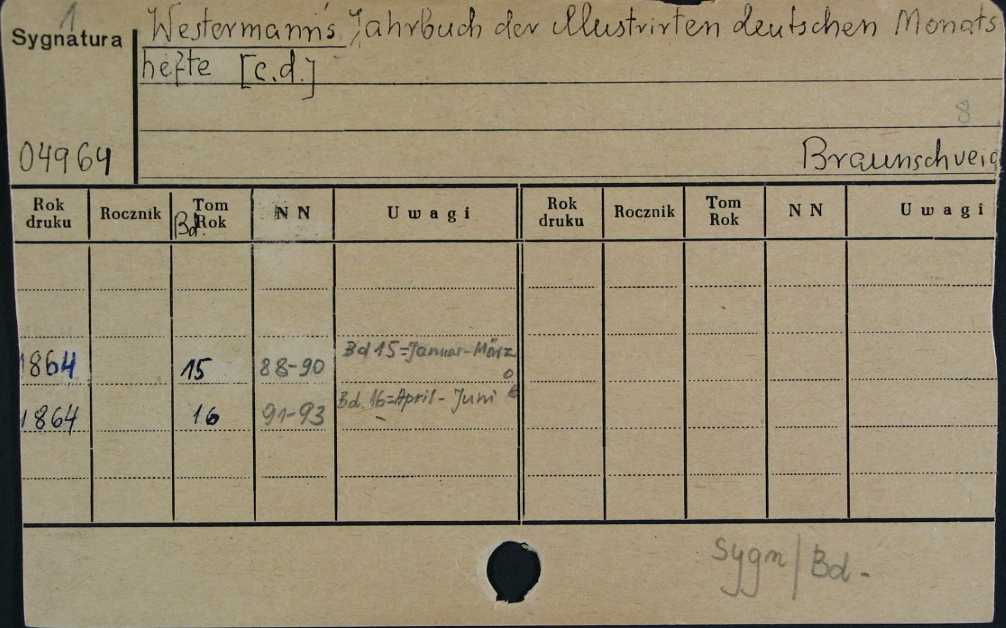 1
Sygnatura
Westermann's Jahrbuch der Illustrirten deutschen Monats
hefte [c.d.]
8
04964
Braunschweig
Rok druku Rocznik Tom Rok Bd. NN Uwagi Rok druku Rocznik Tom Rok NN Uwagi
1864 15 88-90 Bd 15=Januar-März
1864 16 91-93 Bd. 16=April-Juni
Sygn/Bd-